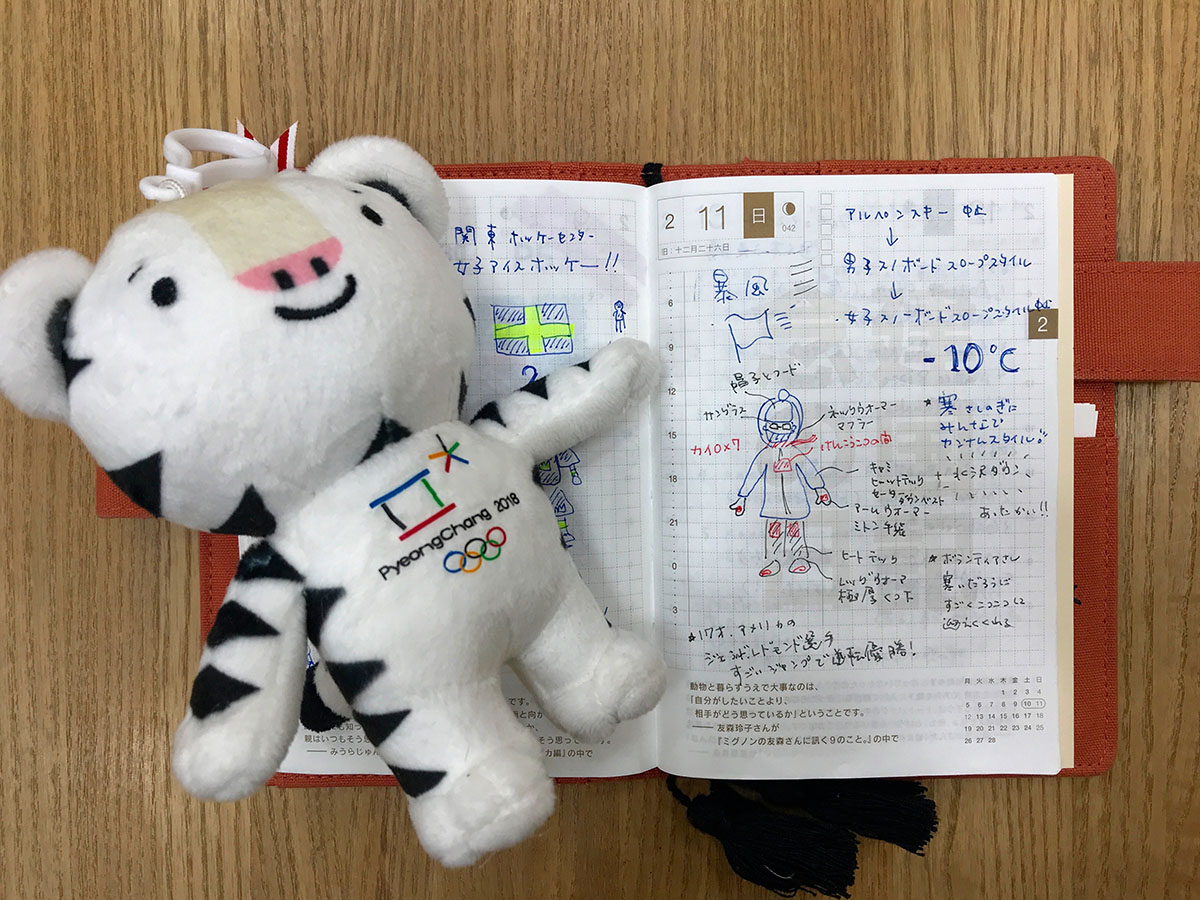 関東ホッケーセンター
女子アイスホッケー!!
2
PyeongChang 2018
です。
親はいつもそう思
そう思っています。』
みうらじゅん
カ編』の中で
2 11 日
042
旧:十二月二十六日
アルペンスキー 中止
↓
男子スノボードスロープスタイル
↓
・女子スノーボードスロープスタイル中止
2
暴風
-10℃
帽子とフード
サングラス
ネックウオーマー
マフラー
カイロ×7
けんこうこつの間
キャミ
ヒートテック
セーター
ダウンベスト
アームウオーマー
ミトン手袋
ヒートテック
レッグウオーマ
極厚くつ下
*寒さしのぎに
みんなで
カンナムスタイル!!
+水沢ダウン
あったかい!!
*ボランティアさん
寒いだろうに
すごくニコニコして
迎えてくれる
*17才、アメリカの
レドモンド選手
すごいジャンプで逆転優勝!
6
9
12
15
18
21
0
3
動物と暮らすうえで大事なのは、
『自分がしたいことより、
相手がどう思っているか』ということです。
―― 友森玲子さんが
『ミグノンの友森さんに訊く9のこと。』の中で
月 火 水 木 金 土 日
1 2 3 4
5 6 7 8 9 10 11
12 13 14 15 16 17 18
19 20 21 22 23 24 25
26 27 28